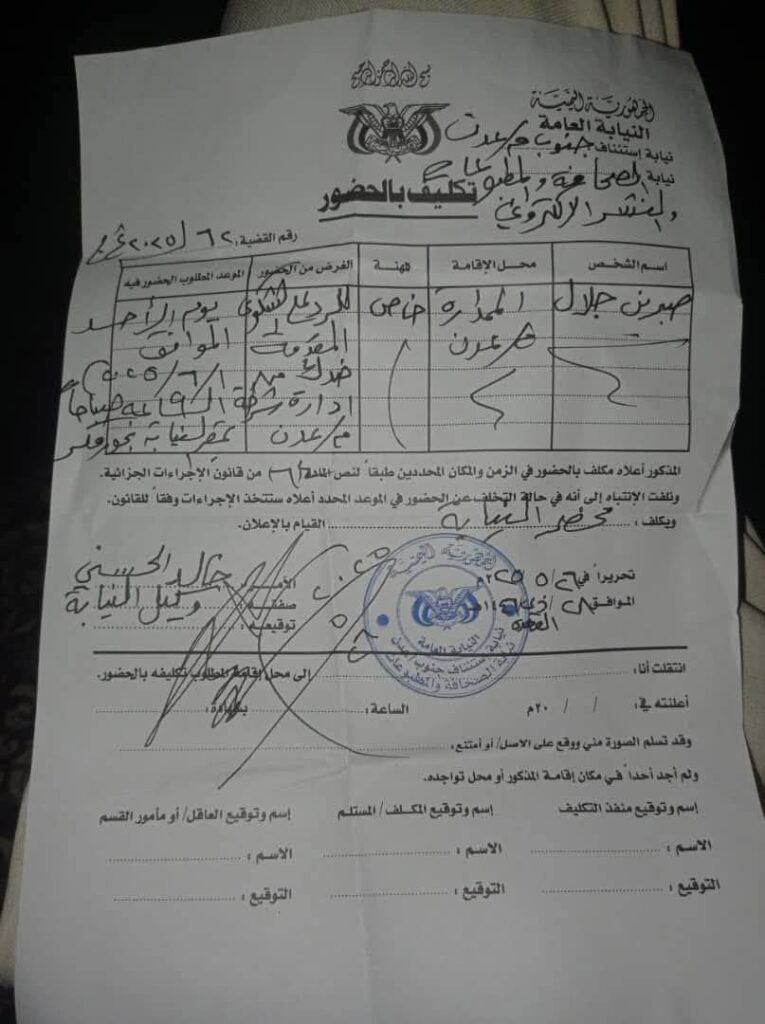 بسم الله الرحمن الرحيم
الجمهورية اليمنية
النيابة العامة
نيابة إستئناف جنوب م/عدن
نيابة الصحافة والمطبوعات
والنشر الإلكتروني
تكليف بالحضور
رقم القضية: ٦٢ / ٢٠٢٥
اسم الشخص محل الإقامة المهنة الغرض من الحضور الموعد المطلوب الحضور فيه
صبرين جلال الممدارة خاص للرد على الشكوى يوم الأحد
م/عدن المقدمة الموافق
ضدك من ١/٦/٢٠٢٥م
إدارة شرطة الساعة ٩ صباحاً
م/عدن بمقر النيابة بخورمكسر
المذكور أعلاه مكلف بالحضور في الزمن والمكان المحددين طبقاً لنص المادة من قانون الإجراءات الجزائية.
ونلفت الإنتباه إلى أنه في حالة التخلف عن الحضور في الموعد المحدد أعلاه ستتخذ الإجراءات وفقاً للقانون.
ويكلف: محضر النيابة القيام بالإعلان.
تحريراً في ٢٦/٥/٢٠٢٥م
الموافق ٢٨/ذي القعدة/١٤٤٦هـ
الآمر: خالد الحسني
صفته: وكيل النيابة
توقيعه:
الجمهورية اليمنية
النيابة العامة
نيابة إستئناف جنوب عدن
نيابة الصحافة والمطبوعات
انتقلت أنا: إلى محل إقامة المطلوب تكليفه بالحضور.
أعلنته في: / / ٢٠م الساعة: بشهادة:
وقد تسلم الصورة مني ووقع على الاصل/ أو أمتنع.
ولم أجد أحداً في مكان إقامة المذكور أو محل تواجده.
إسم وتوقيع منفذ التكليف إسم وتوقيع المكلف/ المستلم إسم وتوقيع العاقل/ أو مأمور القسم
الاسم: الاسم: الاسم:
التوقيع: التوقيع: التوقيع: